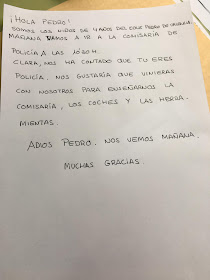 ¡HOLA PEDRO!
SOMOS LOS NIÑOS DE 4 AÑOS DEL COLE PEDRO DE
MAÑANA VAMOS A IR A LA COMISARÍA DE
POLICÍA A LAS 10:30H.
CLARA, NOS HA CONTADO QUE TU ERES
POLICÍA. NOS GUSTARÍA QUE VINIERAS
CON NOSOTROS PARA ENSEÑARNOS LA
COMISARÍA, LOS COCHES Y LAS HERRA-
MIENTAS.
ADIOS PEDRO. NOS VEMOS MAÑANA.
MUCHAS GRACIAS.